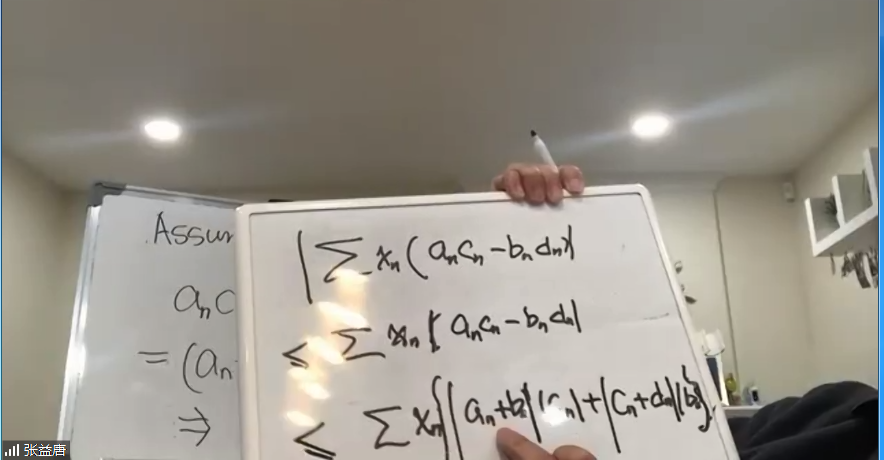 Assum
a_n c
= (a_n
⇒
| Σ x_n (a_n c_n − b_n d_n)|
≤ Σ x_n | a_n c_n − b_n d_n|
≤ Σ x_n { |a_n + b_n| |c_n| + |c_n + d_n| |b_n| }.
张益唐